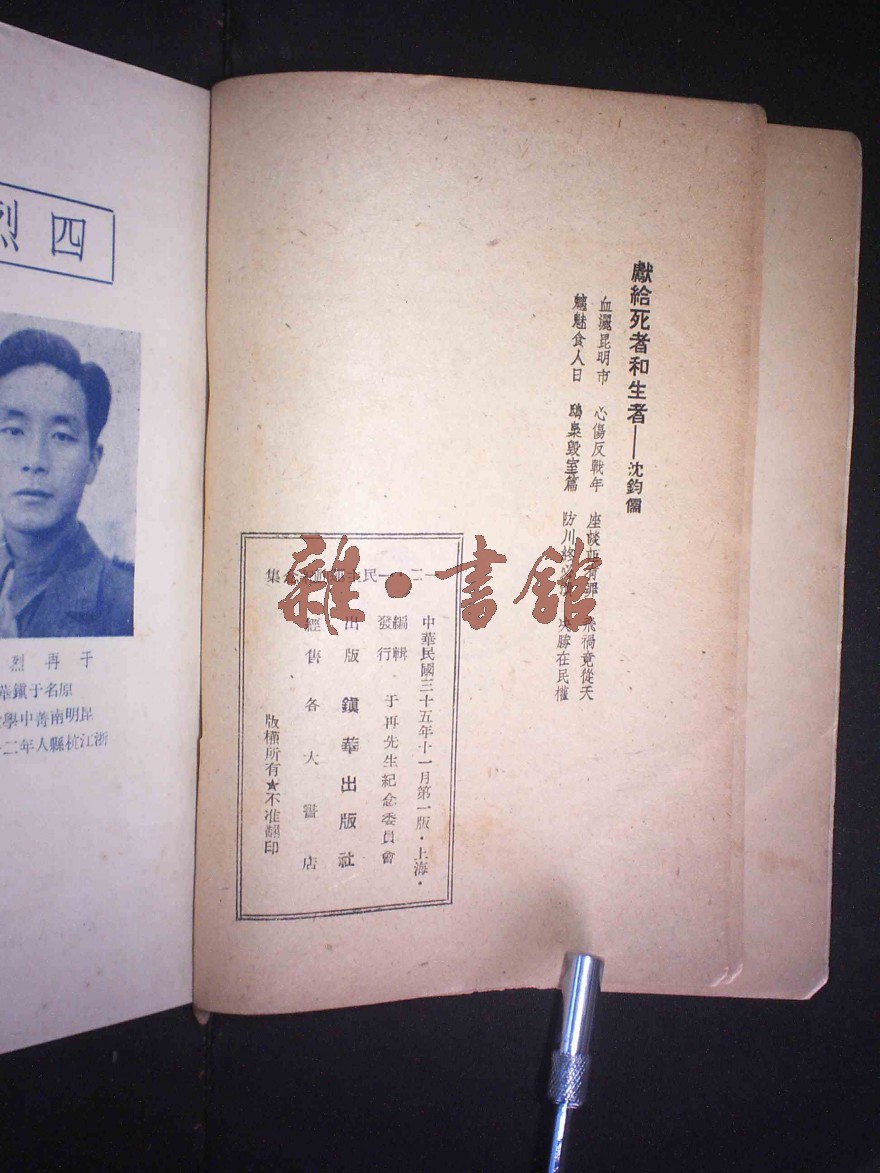 獻給死者和生者——沈鈞儒
血灑昆明市 心傷反戰年 座談 罪 飛禍竟從天
魑魅食人日 鴟梟毀室篇 防川終必 決勝在民權
一二·一民主 念集
中華民國三十五年十一月第一版·上海·
編輯
發行 于再先生紀念委員會
出版 鎮華出版社
經售 各大書店
版權所有★不准翻印
四烈
于再烈
原名于鎮華
昆明南菁中學
浙江杭縣人年二
雜·書館